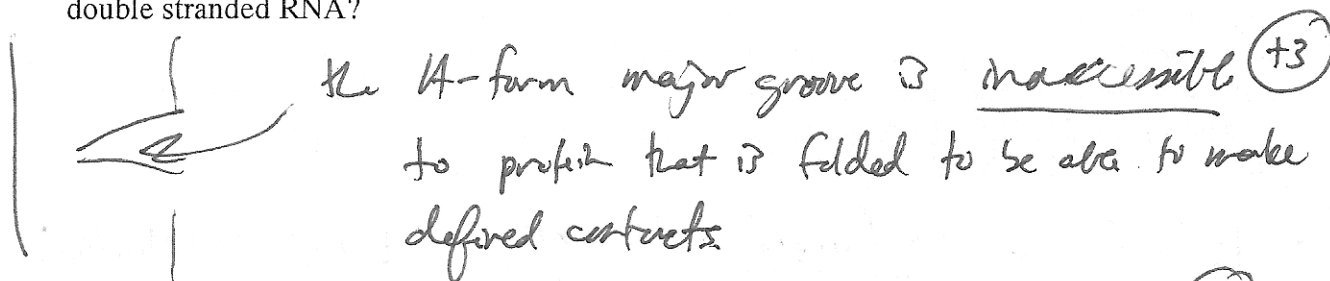 double stranded RNA?
the A-form major groove is inaccessible +3
to protein that is folded to be able to make
defined contacts